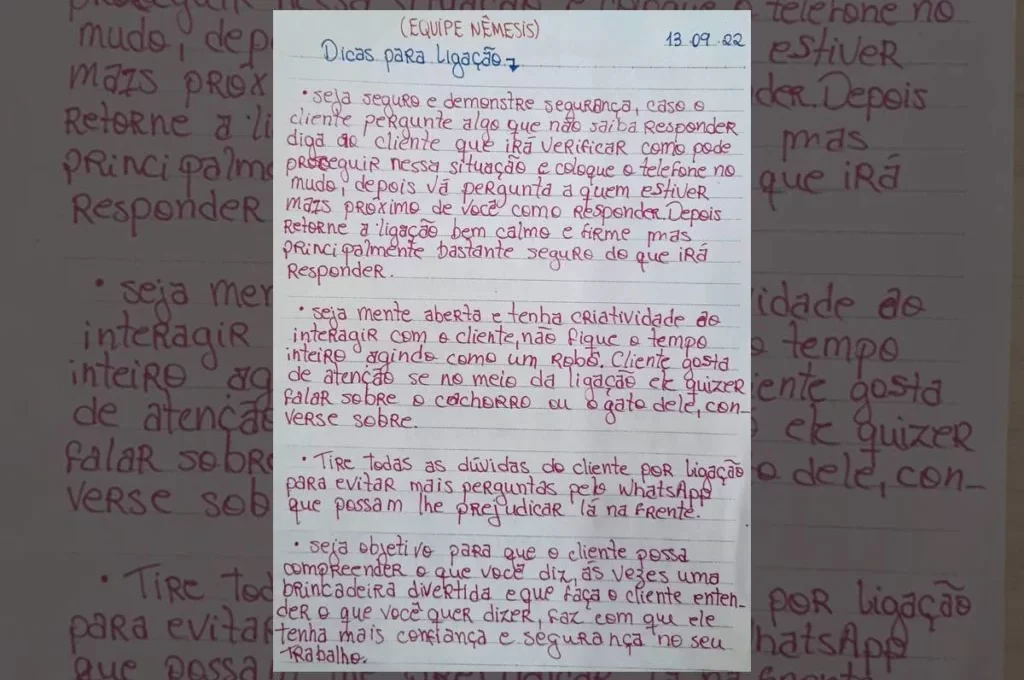 (EQUIPE NÊMESIS)
13.09.22
Dicas para ligação
• seja seguro e demonstre segurança, caso o
cliente pergunte algo que não saiba responder
diga ao cliente que irá verificar como pode
proseguir nessa situação e coloque o telefone no
mudo, depois vá pergunta a quem estiver
mais próximo de você como responder. Depois
retorne a ligação bem calmo e firme mas
principalmente bastante seguro do que irá
responder.
• seja mente aberta e tenha criatividade ao
interagir com o cliente, não fique o tempo
inteiro agindo como um robô. Cliente gosta
de atenção se no meio da ligação ele quizer
falar sobre o cachorro ou o gato dele, con-
verse sobre.
• Tire todas as dúvidas do cliente por ligação
para evitar mais perguntas pelo whatsApp
que possam lhe prejudicar lá na frente.
• seja objetivo para que o cliente possa
compreender o que você diz, ás vezes uma
brincadeira divertida e que faça o cliente enten-
der o que você quer dizer, faz com que ele
tenha mais confiança e segurança no seu
trabalho.